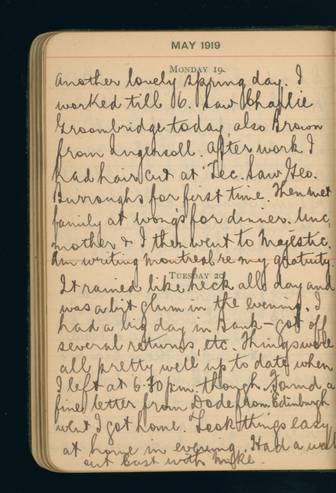 MAY 1919
MONDAY 19
Another lovely spring day. I
worked till 6. Saw Charlie
Groombridge today, also Brown
from Ingersoll. After work I
had hair cut at Tec. Saw Geo.
Burroughs for first time. Then met
family at Wongs for dinner. Unc,
mother & I then went to Majestic.
Am writing Montreal re my gratuity.
TUESDAY 20
It rained like heck all day and
was a bit glum in the evening. I
had a big day in bank - got off
several returns, etc. Things were
all pretty well up to date when
I left at 6.30 p.m. though. Found a
fine letter from Dode from Edinburgh
when I got home. Took things easy
at home in evening. Had a walk
out East with Mike.